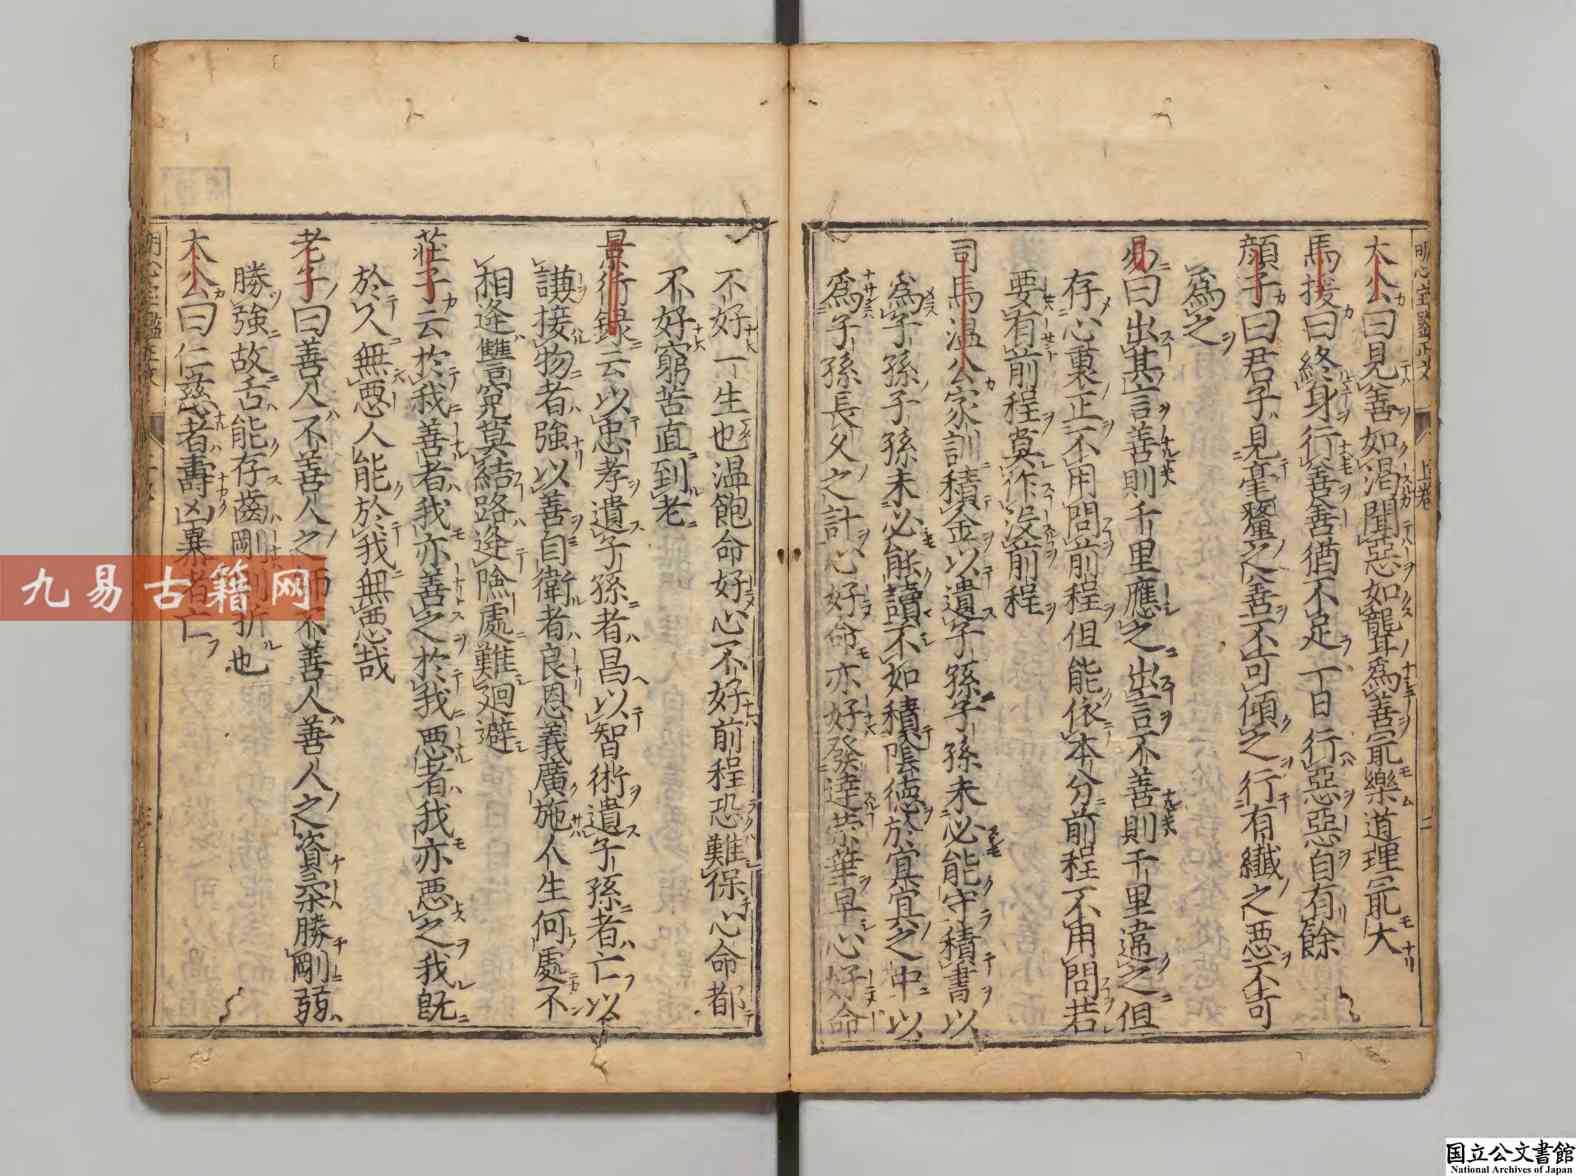 太公曰見善如渴聞惡如聾爲善㝡樂道理㝡大
馬援曰終身行善善猶不足一日行惡惡自有餘
顔子曰君子見毫釐之善不可傾之行有纖之惡不可
爲之
易曰出其言善則千里應之出言不善則千里違之但
存心裏正不用問前程但能依本分前程不用問若
要有前程莫作没前程
司馬温公家訓積金以遺子孫子孫未必能守積書以
爲子孫子孫未必能讀不如積陰德於冥冥之中以
爲子孫長久之計心好命亦好發達榮華早心好命
不好一生也温飽命好心不好前程恐難保心命都
不好窮苦直到老
景行錄云以忠孝遺子孫者昌以智術遺子孫者亡以
謙接物者強以善自衛者良恩義廣施人生何處不
相逢讐寃莫結路逢險處難廻避
莊子云於我善者我亦善之於我惡者我亦惡之我旣
於人無惡人能於我無惡哉
老子曰善人不善人之師不善人善人之資柔勝剛弱
勝強故舌能存齒剛則折也
太公曰仁慈者壽凶暴者亡
九易古籍网
国立公文書館
National Archives of Japan